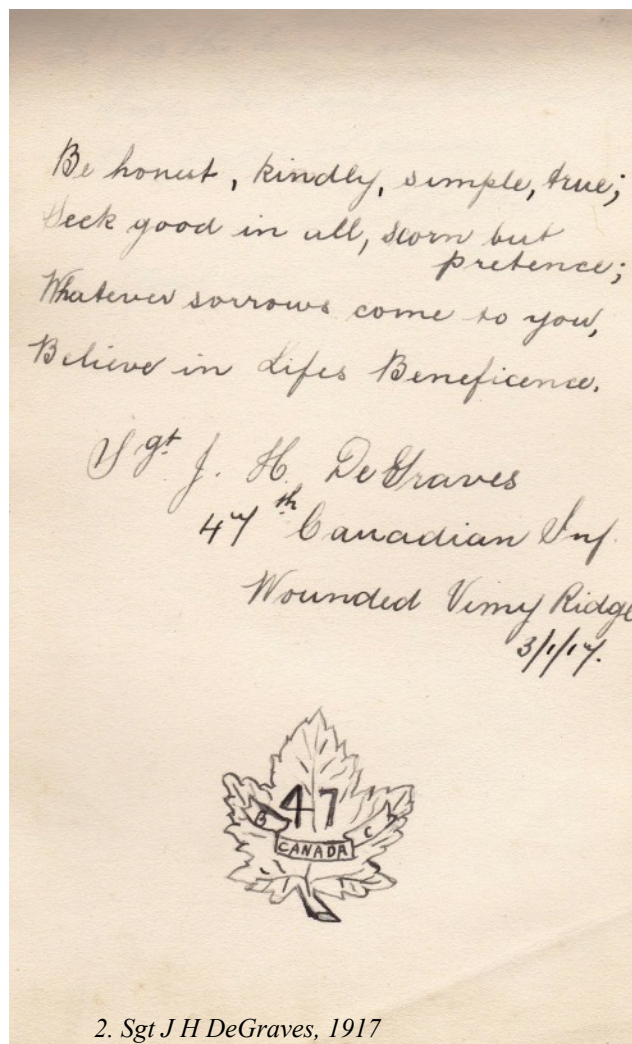 Be honest, kindly, simple, true;
Seek good in all, scorn but
pretence;
Whatever sorrows come to you,
Believe in Lifes Beneficence.
Sgt J. H. DeGraves
47th Canadian Inf.
Wounded Vimy Ridge
3/1/17.
47
B C
CANADA
2. Sgt J H DeGraves, 1917